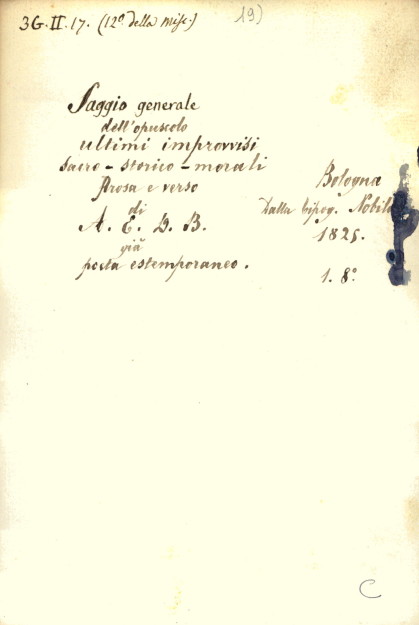 3G. II. 17. (12º della Misc.)
19)
Saggio generale
dell'opuscolo
ultimi improvvisi
sacro-storico-morali
Prosa e verso
di
A. E. D. B.
già
poeta estemporaneo.
Bologna
Dalla tipog. Nobili
1825.
1. 8º
C